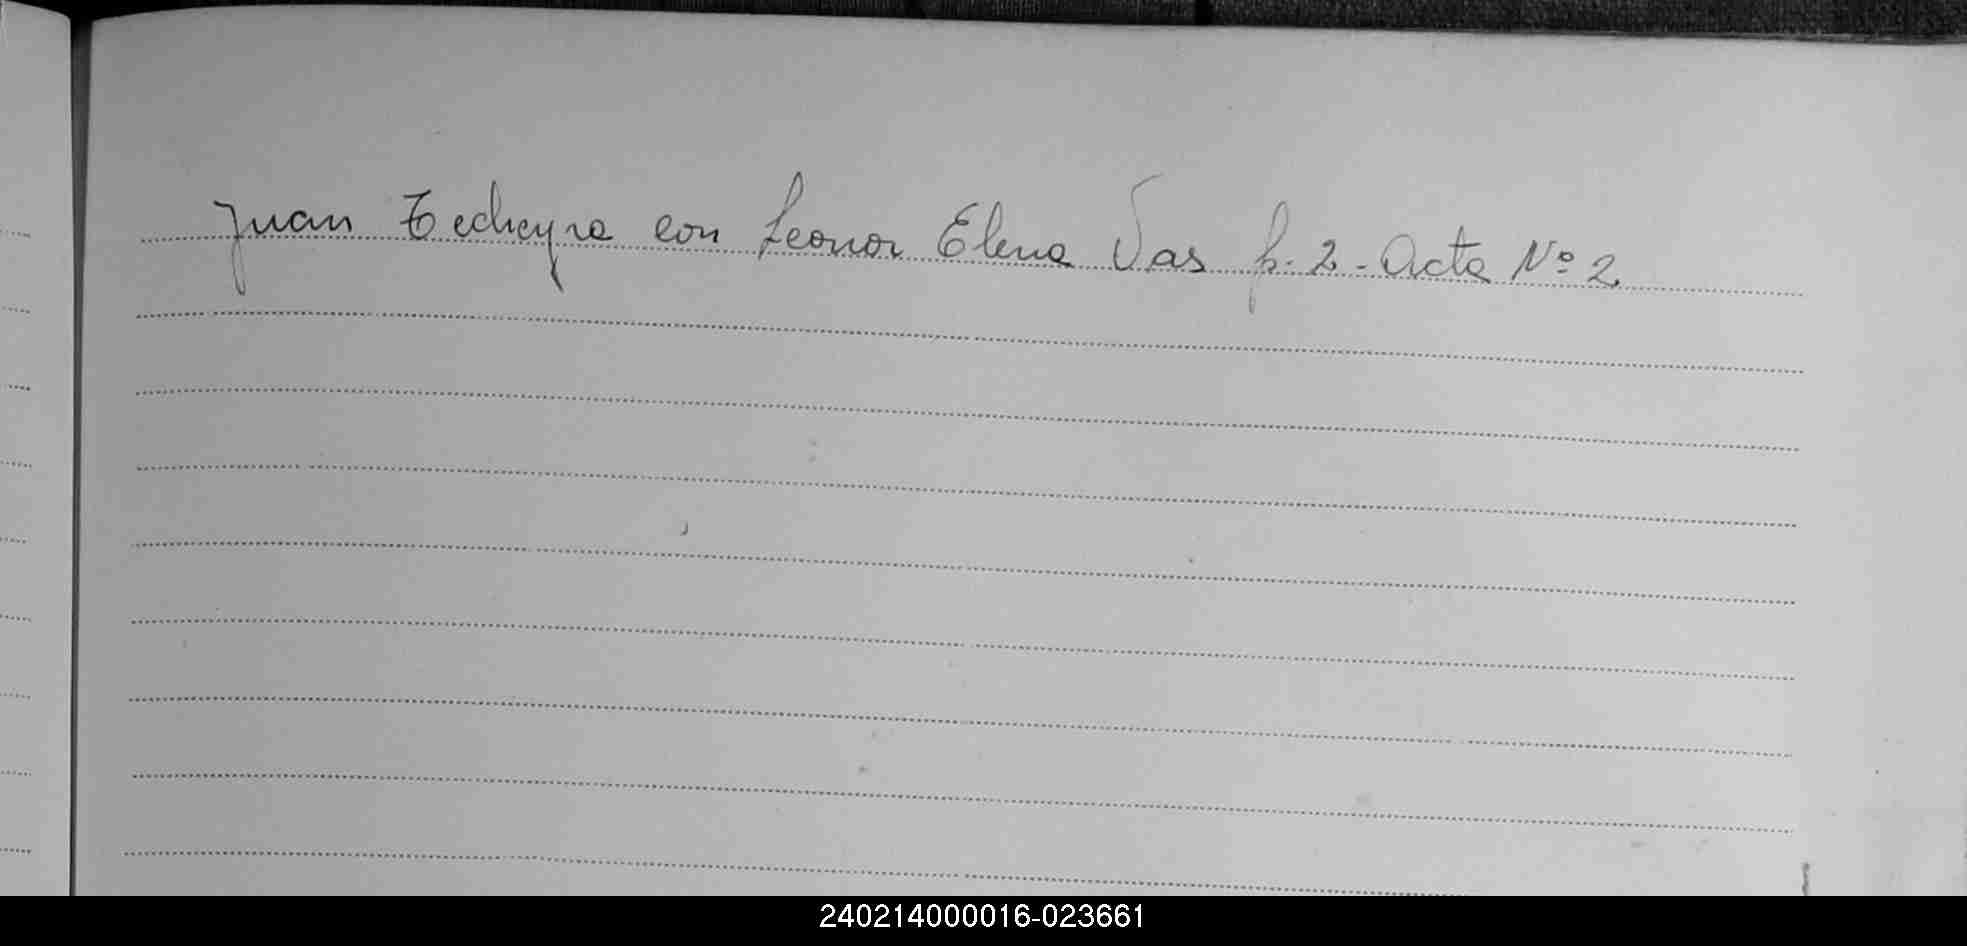 Juan Techeyra con Leonor Elena Vas p. 2 - Acta Nº 2
240214000016-023661